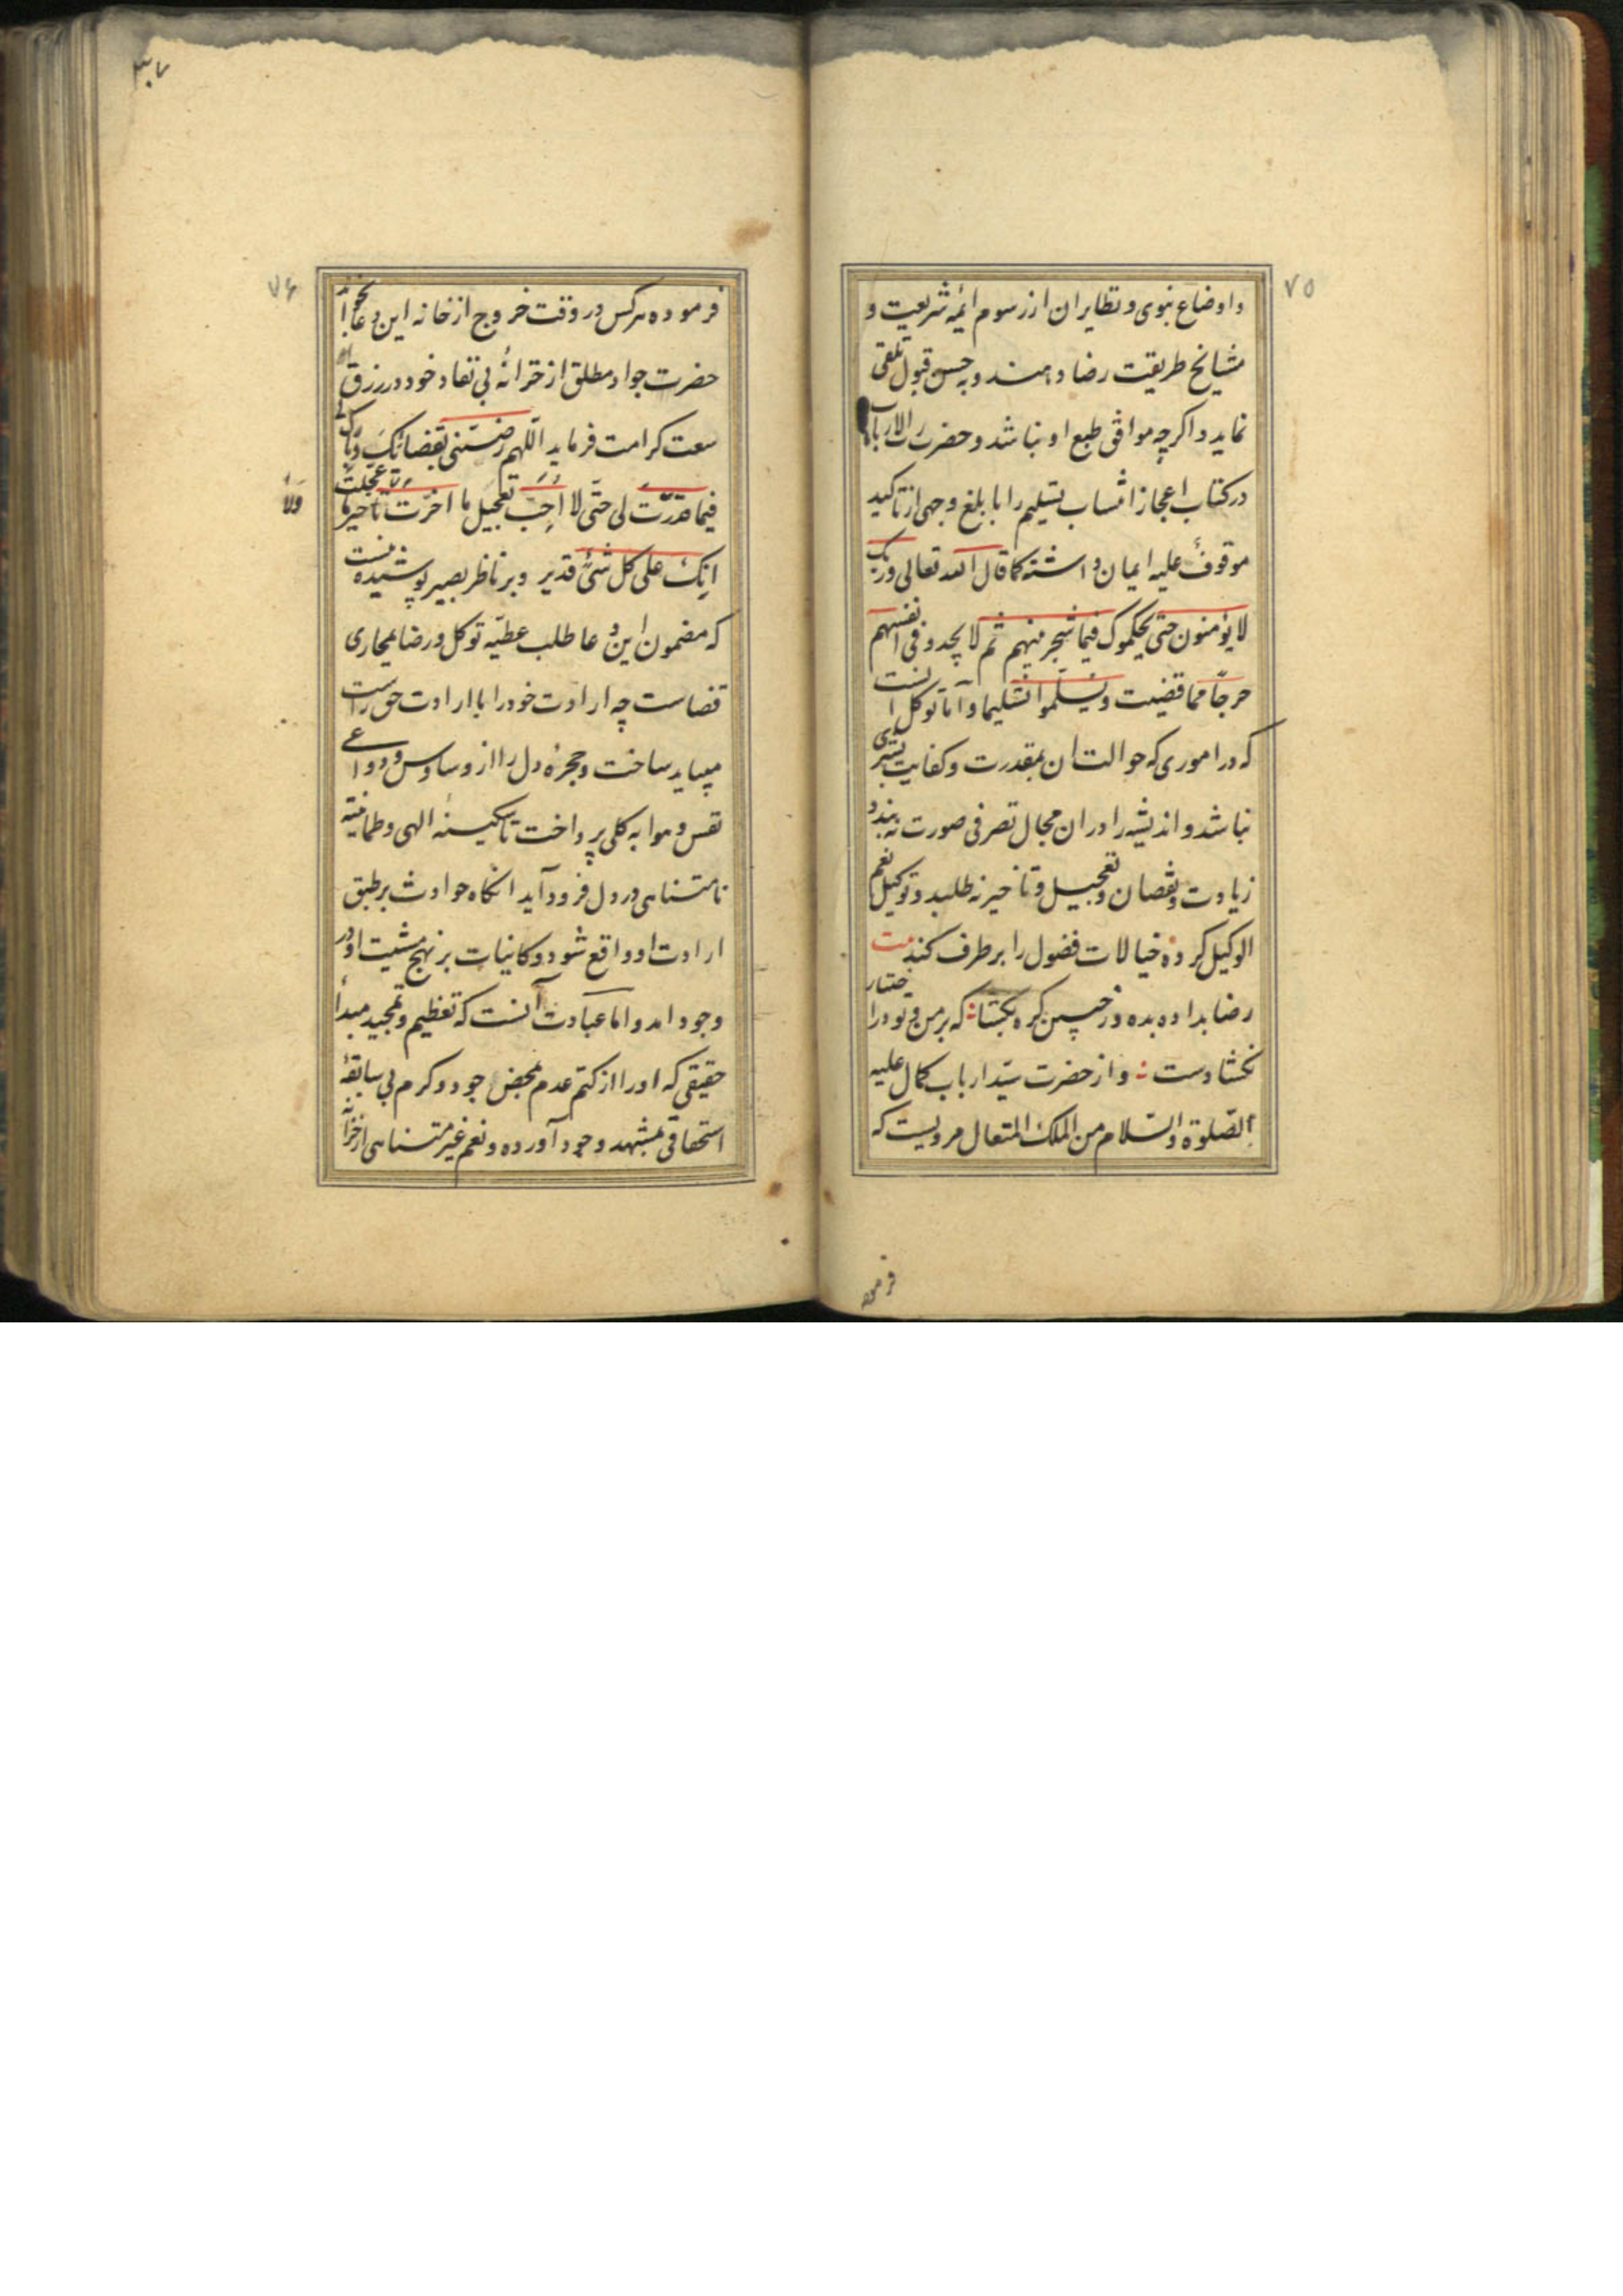 ۷۵
و اوضاع نبوی و نظایر ان از رسوم ائمه شریعت و
مشایخ طریقت رضا دهند و به حسن قبول تلقی
نماید و اگرچه موافق طبع او نباشد و حضرت رب الارباب
در کتاب اعجاز انتساب تسلیم را با بلغ وجهی از تاکید
موقوف علیه ایمان داشته کما قال الله تعالی و ربک
لا یؤمنون حتی یحکموک فیما شجر بینهم ثم لا یجدو فی انفسهم
حرجاً مما قضیت و یسلموا تسلیما و اما توکل انست
که در اموری که حوالت ان بقدرت و کفایت بشری
نباشد و اندیشه را در ان مجال تصرفی صورت نبندد
زیادت و نقصان و تعجیل و تاخیر نه طلبد و توکیل نعم
الوکیل کرده خیالات فضول را بر طرف کند بیت
رضا بداده بده وز جبین گره بگشا که بر من و تو در اختیار
نگشادست و از حضرت سید ارباب کمال علیه
الصلوة والسلام من الملک المتعال مرویست که
فرموده
۷۶
فرموده هر کس در وقت خروج از خانه این دعا بخواند
حضرت جواد مطلق از خزانه بی نفاد خود در رزق او
سعت کرامت فرماید اللهم رضنی بقضائک و بارک لی
فیما قدرت لی حتی لا احب تعجیل ما اخرت و لا تاخیر ما عجلت
ولا
انک علی کل شیء قدیر و بر ناظر بصیر پوشیده نیست
که مضمون این دعا طلب عطیه توکل و رضا بمجاری
قضاست چه ارادت خود را با ارادت حق راست
میباید ساخت و حجره دل را از وساوس و دواعی
نفس و هوا به کلی پرداخت تا سکینه الهی و طمانینه
نامتناهی در دل فرود آید انگاه حوادث بر طبق
ارادت او واقع شود و کاینات بر نهج مشیت او در
وجود امد و اما عبادت آنست که تعظیم و تمجید مبدأ
حقیقی که او را از کتم عدم بمحض جود و کرم بی سابقه
استحقاقی بمشهد وجود آورده و نعم غیر متناهی از خزانه